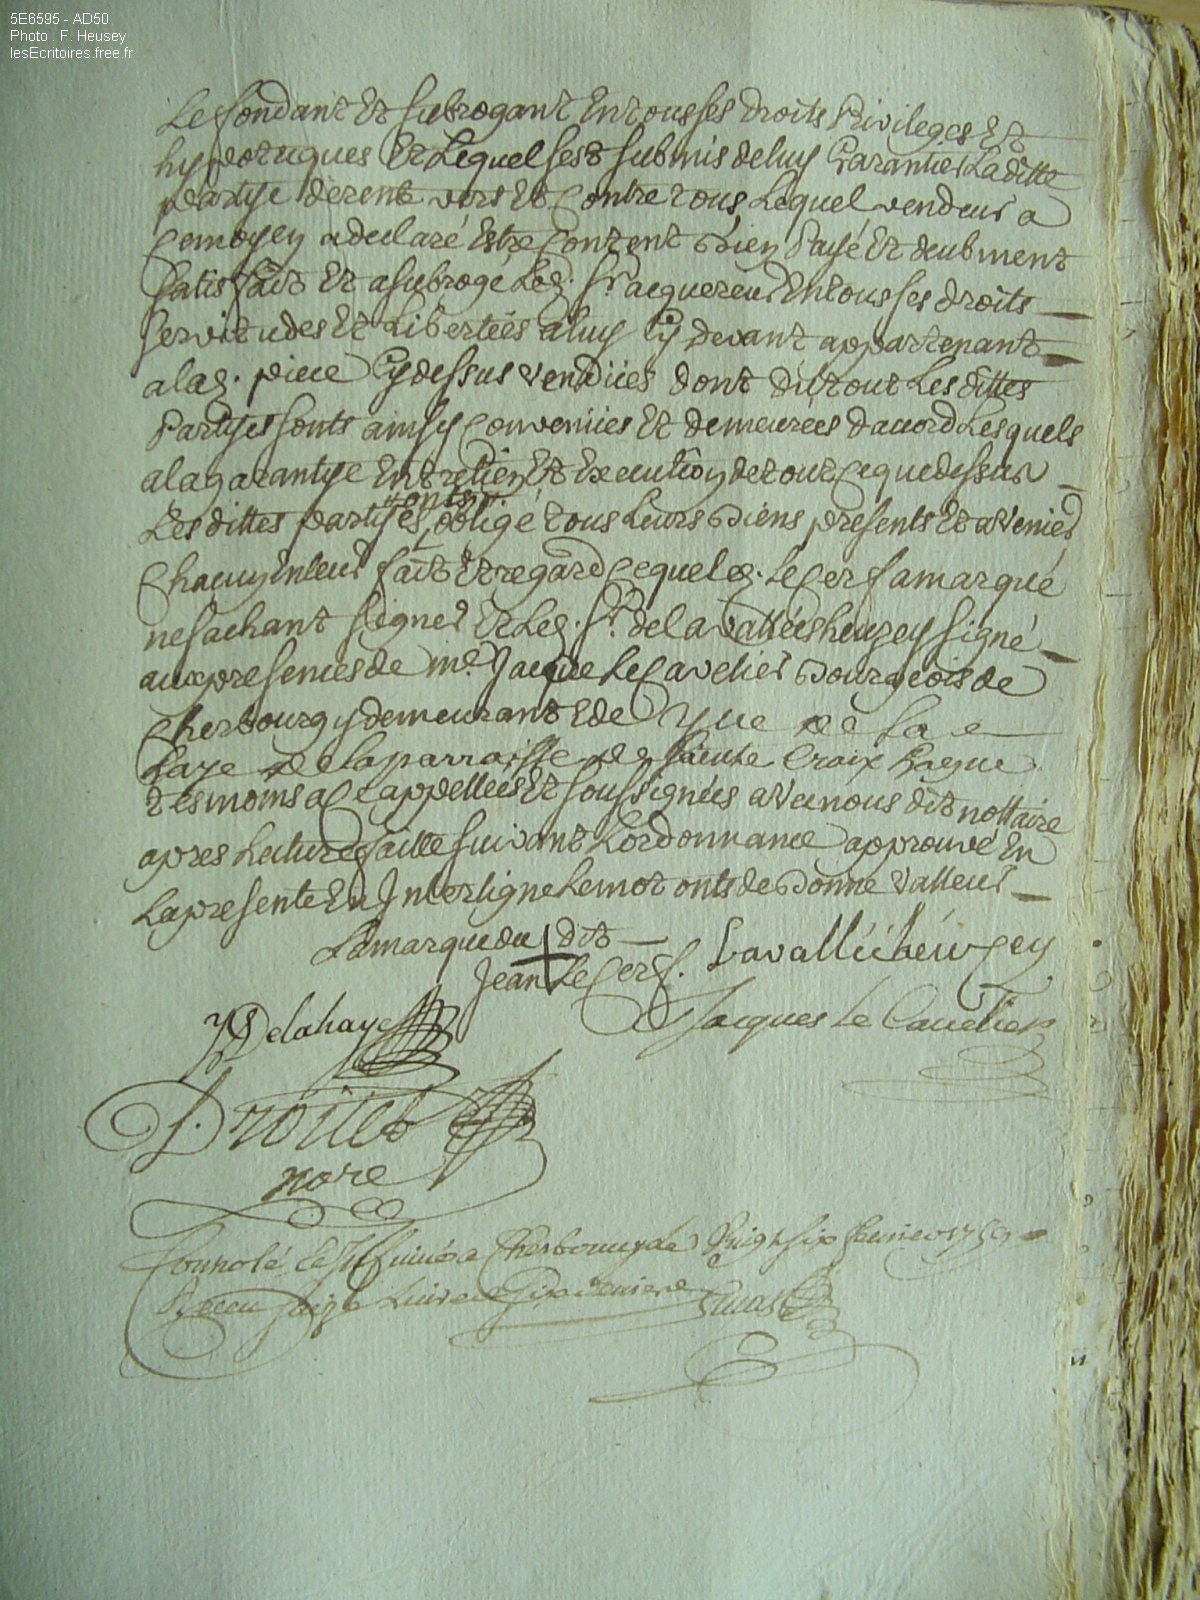 5E6595 - AD50
Photo : F. Heusey
lesEcritoires.free.fr
Le fondant Et subrogant En tous ses droits Privileges Et
hypotuques Et Lequel sest submis deluy Garantier Laditte
partye derente vers Et Contre tous Lequel vendeur a
Cemoyen adeclaré Estre Content bien Payé Et deubment
satisfait Et asubrogé Led. Sr. acquereur En tous ses droits
servitudes Et Libertées aluy Cy devant appartenant
alad. piece Cydessus vendües dont du tout Lesdittes
Partyes sonts ainsy Convenües Et demeurées daccord Lesquels
alagarantye Entretien Et Execution de tout Ceque dessus
Les dittes partyes onts obligé tous Leurs biens presents Et avenier
Chacun Enleur fait Et regard Ceque led. Le Cerf amarqué
nesachant signer Et Led. Sr. de la Vallée heuzey signé
auxpresences de Me. Jacque Le Cavelier bourgeois de
Cherbourg y demeurant Et de de La
haye de la parroisse de sainte Croix hague
tesmoins a Ce appellées Et soussignées avec nous dit nottaire
apres Lecture faitte suivant Lordonnance approuvé En
La presente En Interligne Le mot onts de bonne valleur
La marque du dit
Jean Le Cerf. Lavallée heuzey
Delahaye Jacques Le Cauelier
J. Droüet
nore
Controlé à Cherbourg Le Vingt six 1759
Receu Seize Livres Six deniers Lucas